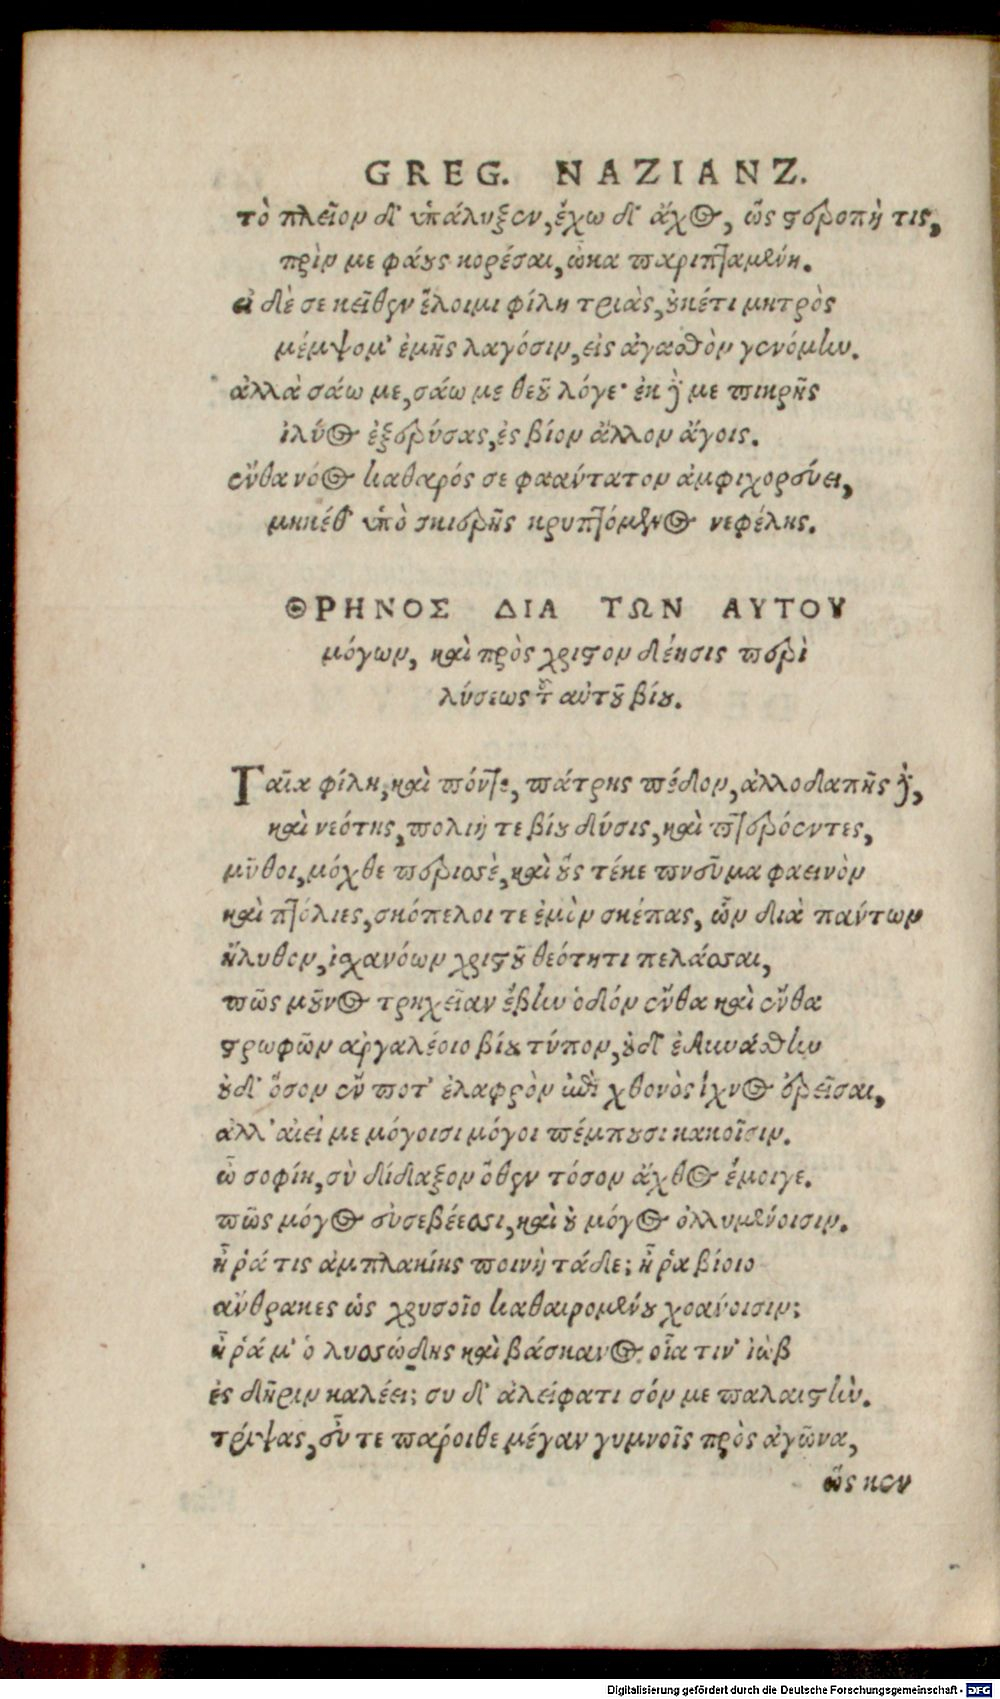 GREG. NAZIANZ.
τὸ πλεῖον δ' ὑπάλυξεν, ἔχω δ' ἄχος, ὥς στεροπή τις,
πρίν με φάους κορέσαι, ὦκα παριπταμένη.
εἰ δὲ σε κεῖθεν ἕλοιμι φίλη τριὰς, οὐκέτι μητρὸς
μέμψομ' ἐμῆς λαγόσιν, εἰς ἀγαθὸν γενόμην.
ἀλλὰ σάω με, σάω με θεοῦ λόγε· ἐκ δέ με πικρῆς
ἰλύος ἐξερύσας, ἐς βίον ἄλλον ἄγοις.
ἔνθα νόος καθαρός σε φαάντατον ἀμφιχορεύει,
μηκέθ' ὑπὸ σκιερῆς κρυπτόμενος νεφέλης.
ΘΡΗΝΟΣ ΔΙΑ ΤΩΝ ΑΥΤΟΥ
μόγων, καὶ πρὸς χριστον δέησις περὶ
λύσεως τοῦ αὐτοῦ βίου.
Γαῖα φίλη, καὶ πόντε, πάτρης πέδον, ἀλλοδαπῆς δὲ,
καὶ νεότης, πολιή τε βίου δύσις, καὶ πτερόεντες,
μῦθοι, μόχθε περισσὲ, καὶ οὓς τέκε πνεῦμα φαεινὸν
καὶ πτόλιες, σκόπελοι τε ἐμὸν σκέπας, ὧν διὰ πάντων
ἤλυθον, ἰχανόων χριστοῦ θεότητι πελάσσαι,
πῶς μοῦνος τρηχεῖαν ἔβην ὁδὸν ἔνθα καὶ ἔνθα
στρωφῶν ἀργαλέοιο βίου τύπον, οὐδ' ἐδυνάσθην
οὐδ' ὅσον ἔν ποτ' ἐλαφρὸν ἐπὶ χθονὸς ἴχνος ἐρεῖσαι,
ἀλλ' αἰεί με μόγοισι μόγοι πέμπουσι κακοῖσιν.
ὦ σοφίη, σὺ δίδαξον ὅθεν τόσον ἄχθος ἔμοιγε.
πῶς μόγος εὐσεβέεσσι, καὶ οὐ μόγος ὀλλυμένοισιν.
ἦ ῥά τις ἀμπλακίης ποινὴ τάδε; ἦ ῥα βίοιο
ἄνθρακες ὡς χρυσοῖο καθαιρομένου χοάνοισιν;
ἦ ῥά μ' ὁ λυσσώδης καὶ βάσκανος, οἷα τιν' ἰὼβ
ἐς δῆριν καλέει; συ δ' ἀλείφατι σόν με παλαιστὴν.
τρίψας, εὖ τε πάροιθε μέγαν γυμνοῖς πρὸς ἀγῶνα,
ὥς κεν
Digitalisierung gefördert durch die Deutsche Forschungsgemeinschaft - DFG